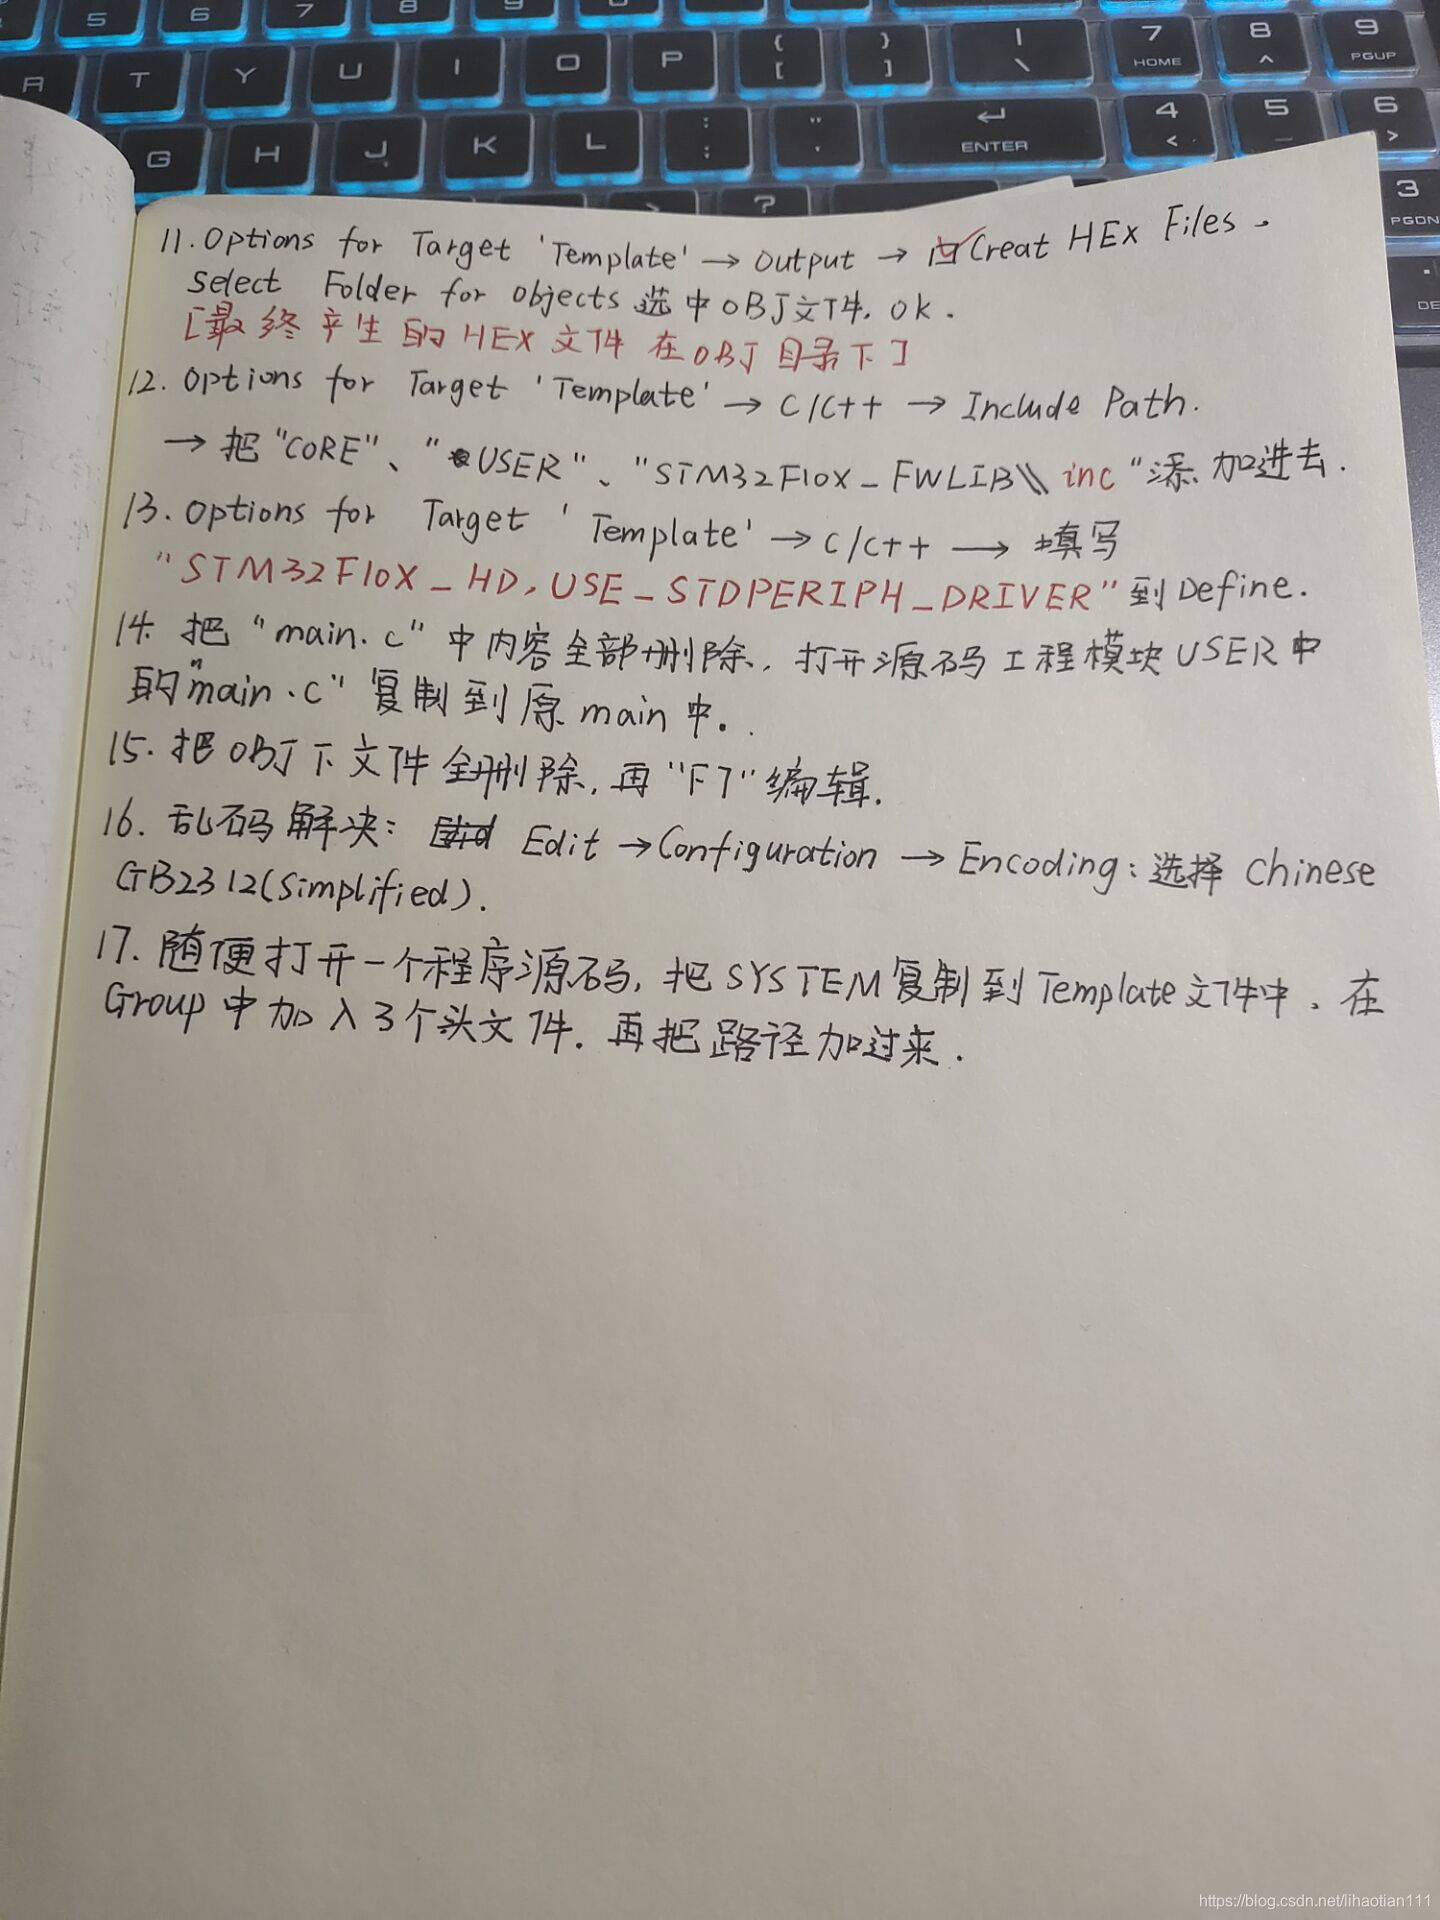 5 6 7 8 9
R T Y U I O P { [ } ] | \ 7 HOME 8 ^ 9 PGUP
G H J K L : ; " ' ENTER 4 < 5 6 >
? 3 PGDN
11. Options for Target 'Template' → Output → ☑ Creat HEX Files.
Select Folder for objects 选中OBJ文件. OK.
[最终产生的HEX文件在OBJ目录下]
12. Options for Target 'Template' → C/C++ → Include Path.
→ 把"CORE"、"USER"、"STM32F10X_FWLIB\\inc"添加进去.
13. Options for Target 'Template' → C/C++ → 填写
"STM32F10X_HD,USE_STDPERIPH_DRIVER"到Define.
14. 把"main.c"中内容全部删除, 打开源码工程模块USER中
的"main.c"复制到原main中。
15. 把OBJ下文件全删除, 再"F7"编辑.
16. 乱码解决: Edit → Configuration → Encoding: 选择 Chinese
GB2312(Simplified).
17. 随便打开一个程序源码, 把SYSTEM复制到Template文件中. 在
Group中加入3个头文件. 再把路径加过来.
https://blog.csdn.net/lihaotian111